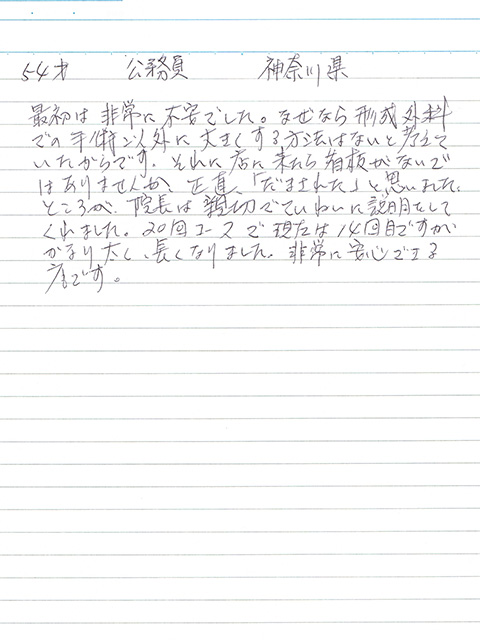 54才 公務員 神奈川県
最初は非常に不安でした。なぜなら形成外科
での手術以外に大きくする方法はないと考えて
いたからです。それに店に来たら看板がないで
はありませんか、正直、「だまされた」と思いました。
ところが、院長は親切でていねいに説明をして
くれました。20回コースで現在は14回目ですが
かなり太く、長くなりました。非常に安心できる
店です。